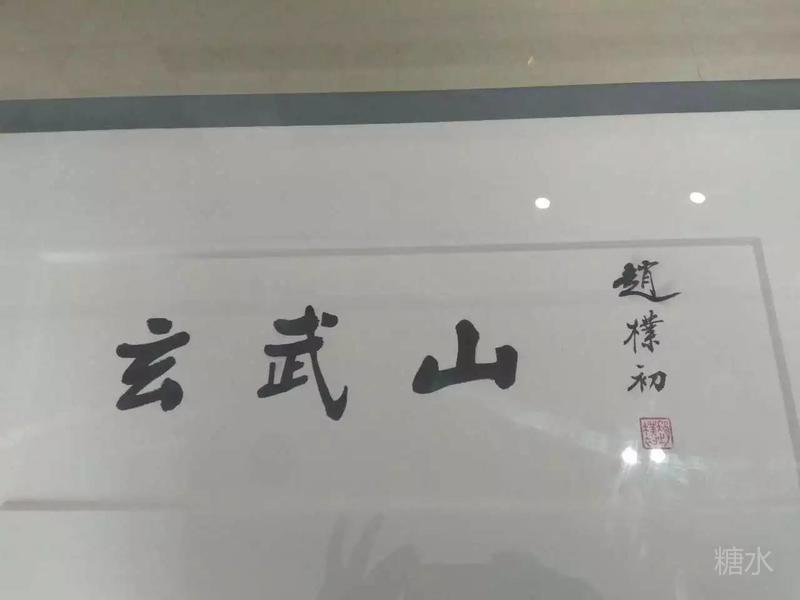 玄武山
趙樸初
糖水